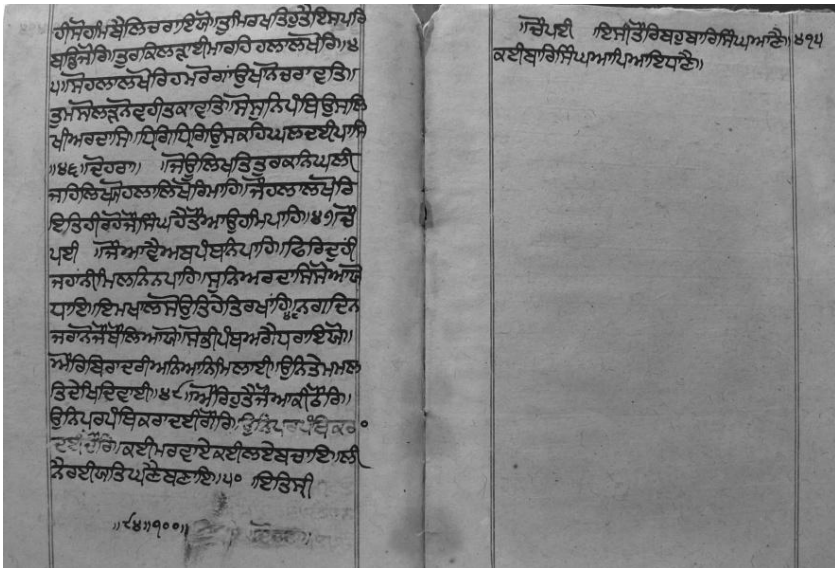 ਹੀਸੋਹਮਿਬੈਲਿਚਰਾਇਯੋ॥ਤੁਮਿਰਖਤਿਹੁਤੈਇਸਪਰਿ
ਬਡਿਜੋਰਿ॥ਤੁਰਕਿਲੜਾਈਮਾਰਹਿਹਲਾਲਖੋਰਿ॥੪
੫॥ਸੋਹਲਾਲਖੋਰਿਹਮਰੋਰਾਂਉਖਨੋਚਰਾਵਤਿ॥
ਤੁਮੰਸੋਲੜਨੋਵਹੀਤਕਾਵਤਿ॥ਸੋਸੁਨਿਪੰਥਿਉਸਲਿ
ਖੀਅਰਦਾਸਿ॥ਧ੍ਰਿਗਿਧ੍ਰਿਗਿਉਸਕਹਿਘਲਦਈਪਾਸਿ
॥੪੬॥ਦੋਹਰਾ॥ ॥ਜੋਉਲਿਖਤਿਤੁਰਕਨਿਘਲੀ
ਜਾਹਿਲਿਖੋਯੋਹਲਾਲਿਖੋਰਿਮਾਹਿ॥ਜੌਹਲਾਲਖੋਰਿ
ਇਤਿਹੀਰਹੋਜੌਸਿੰਘਹੈਤੌਆਉਹਮਿਪਾਹਿ॥੪੭॥ਚੌ
ਪਈ ॥ਜੌਆਵੈਅਬਪੰਥਨਿਪਾਹਿ॥ਫਿਰਿਦੁਹਂੀ
ਜਹਾਂਨੀਮਿਲਨਿਨਪਾਹਿ॥ਸੁਨਿਅਰਦਾਸਿੰਸੋਆਯੋ
ਧਾਇ॥ਇਮਖਾਲਸੋਉਤਿਹੇਤਿਰਖਾਂਹਿ॥ਨਗਦਿਨ
ਜਰਾਨੋਜੌਬੌਲਿਆਯੋ॥ਸੋਭੀਪੰਥਅਗੈਧਰਾਇਯੋ॥
ਔਰਿਬਿਰਾਦਰੀਅਨਿਆਨਿਮਿਲਾਈ॥ਉਨਿਤੇਮਮਲ
ਤਿਦੇਖਿਦਿਵਾਈ॥੪੯॥ਔਰਿਹੁਤੈਜੋਆਕੀਠੌਰਿ॥
ਉਨਿਪਰਪੰਥਿਕਰਾਦਈਰੌਰਿ॥ਉਨਿਪਰਪੰਥਿਕਰਾ
ਦਈਦੌਰਿ॥ਕਈਮਰਵਾਏਕਈਲਏਬਚਾਇ॥ਲੀ
ਨੈਰਈਯਤਿਘਣੈਬਣਾਇ॥੫੦ ਇਤਿਸ੍ਰੀ
॥੯੪॥੧੦੦॥
॥ਚੌਪਈ ॥ਇਸੀਤੌਰਿਬਹੁਬਾਰਿਸਿੰਘਆਣੈ॥੪੧੫
ਕਈਬਾਰਿਸਿੰਘਆਪਿਆਇਧਾਣੈ॥